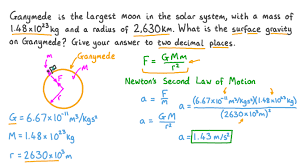 Ganymede is the largest moon in the solar system, with a mass of
1.48×10²³ kg and a radius of 2,630 km. What is the surface gravity
on Ganymede? Give your answer to two decimal places.
m
Ganymede
M
F
r
F = GMm / r²
Newton's Second Law of Motion
a = F / m
a = GM / r²
a = (6.67×10⁻¹¹ m³/kgs²)(1.48×10²³ kg) / (2630×10³ m)²
a = 1.43 m/s²
G = 6.67×10⁻¹¹ m³/kgs²
M = 1.48×10²³ kg
r = 2630×10³ m